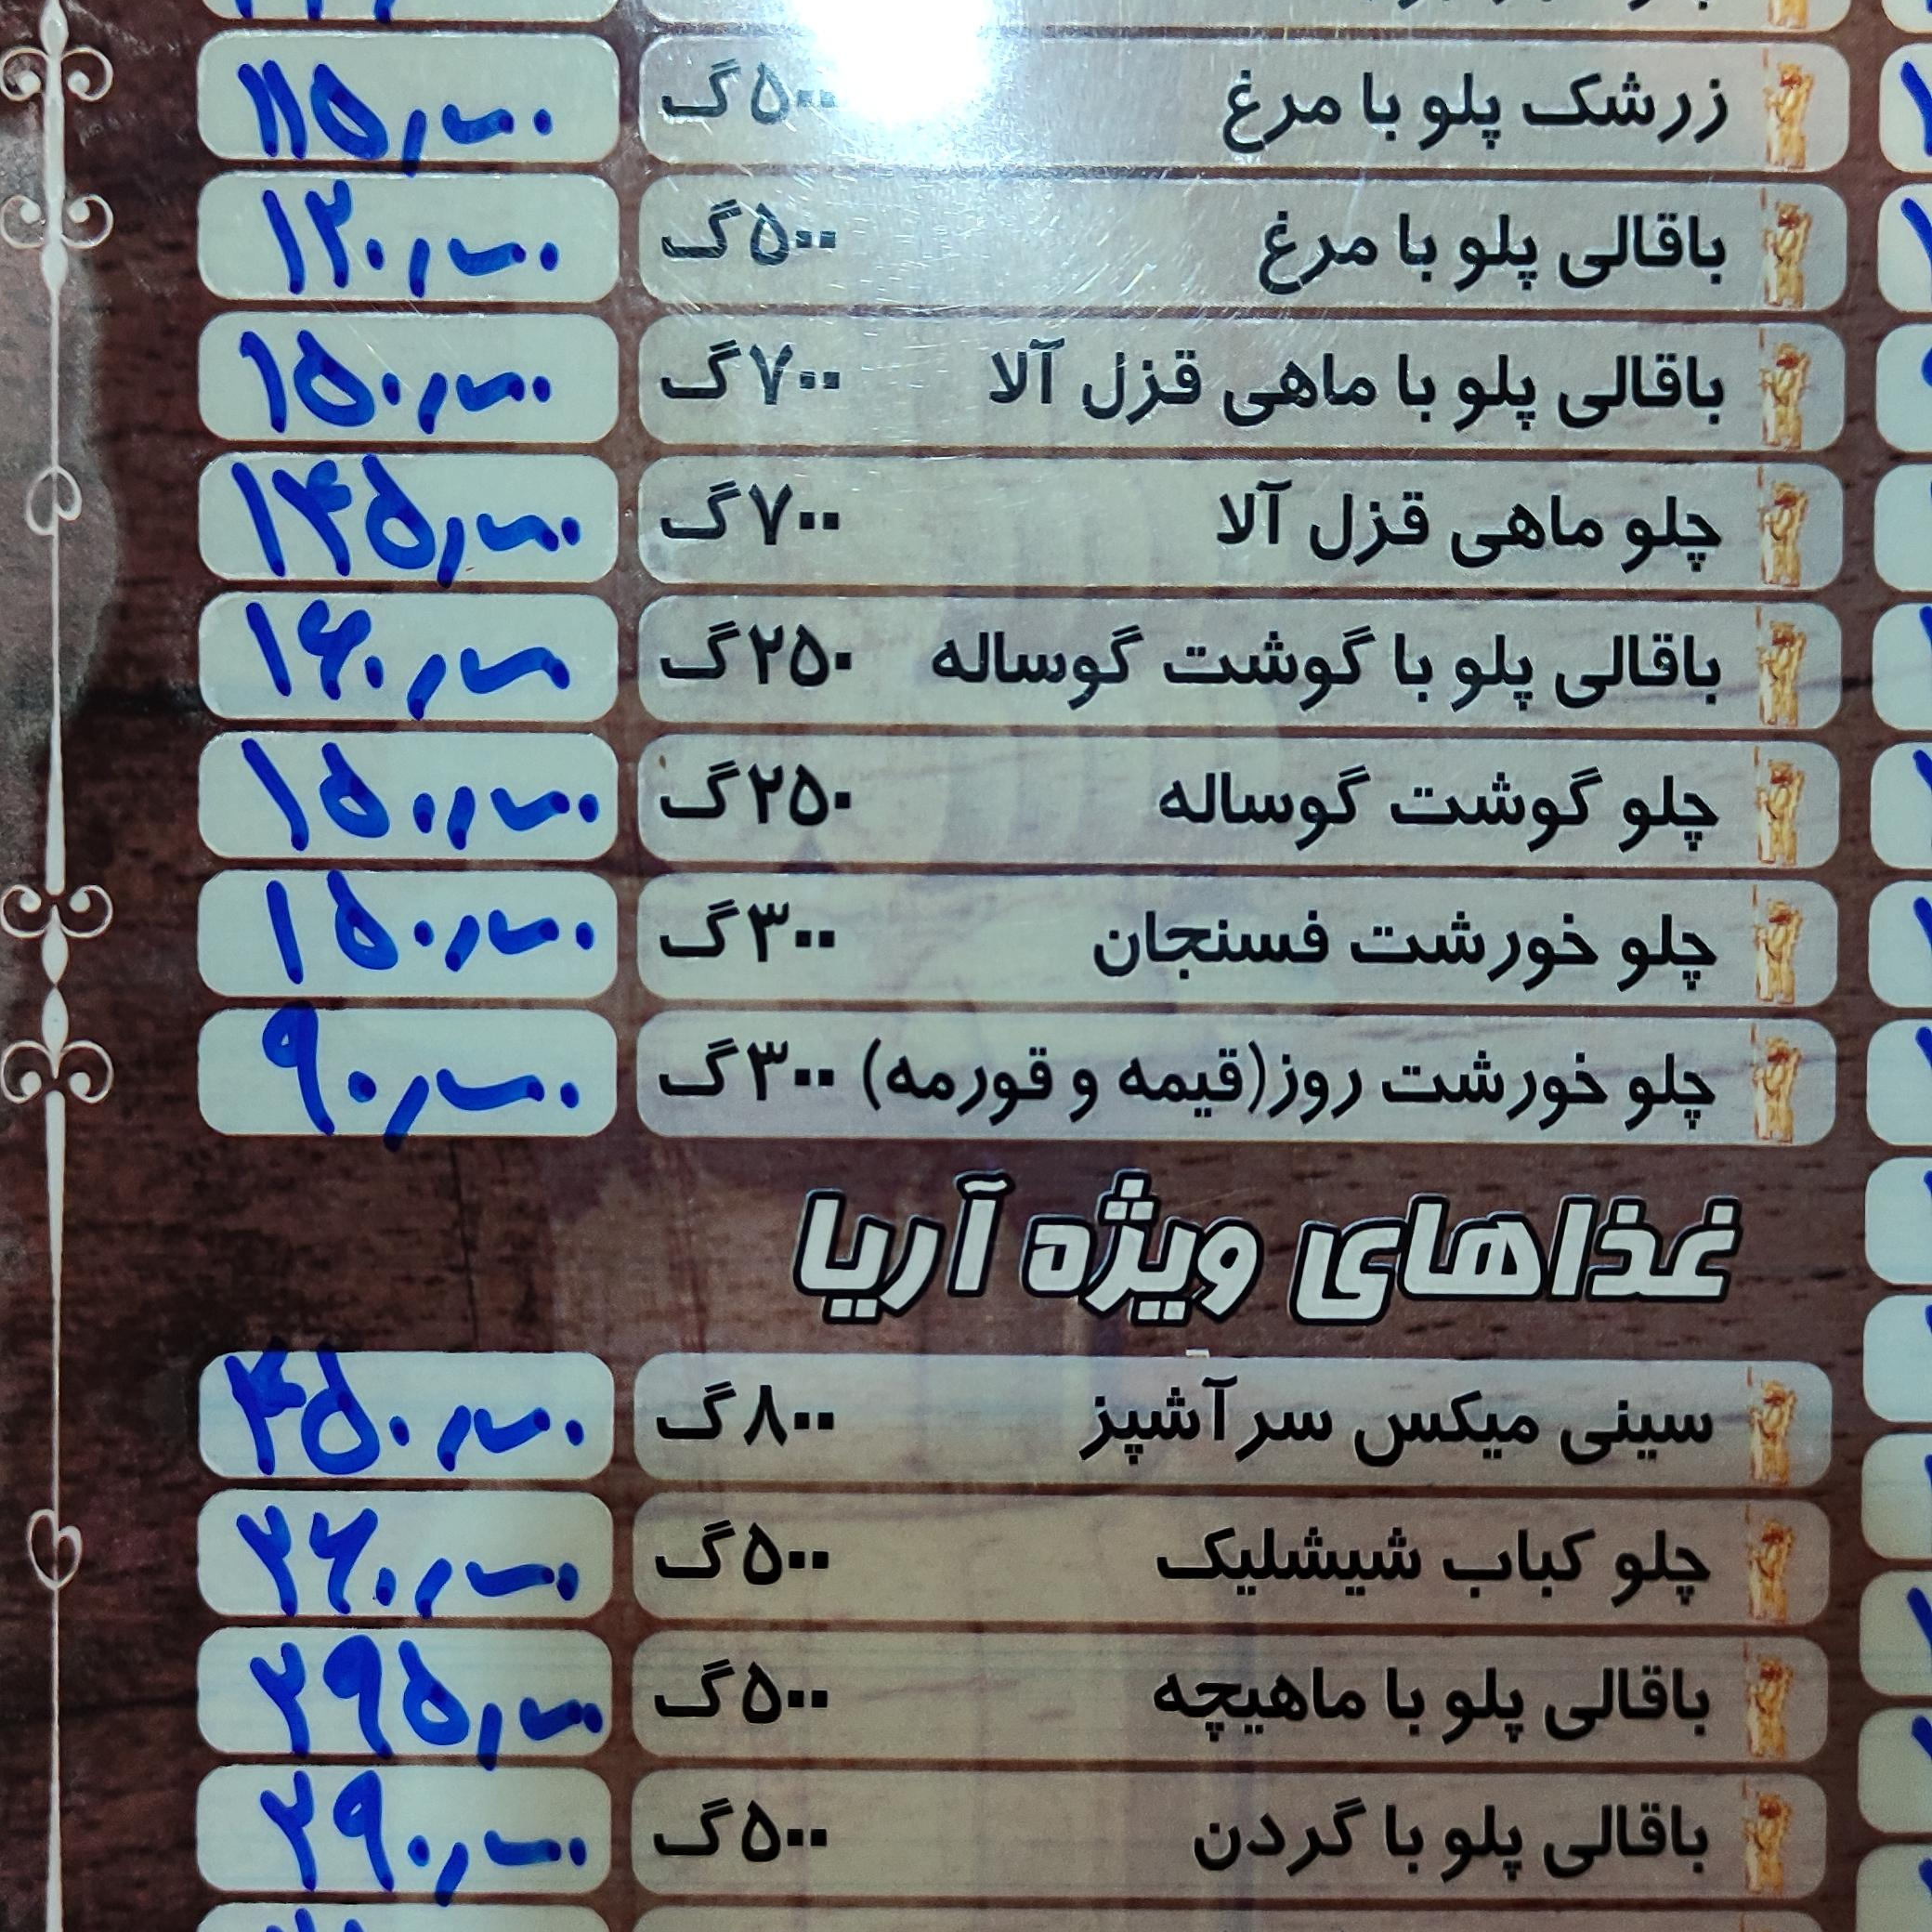 زرشک پلو با مرغ ۵۰۰گ ۱۱۵٫۰۰۰
باقالی پلو با مرغ ۵۰۰گ ۱۲۰٫۰۰۰
باقالی پلو با ماهی قزل آلا ۷۰۰گ ۱۵۰٫۰۰۰
چلو ماهی قزل آلا ۷۰۰گ ۱۴۵٫۰۰۰
باقالی پلو با گوشت گوساله ۲۵۰گ ۱۶۰٫۰۰۰
چلو گوشت گوساله ۲۵۰گ ۱۵۰٫۰۰۰
چلو خورشت فسنجان ۳۰۰گ ۱۵۰٫۰۰۰
چلو خورشت روز(قیمه و قورمه) ۳۰۰گ ۹۰٫۰۰۰
غذاهای ویژه آریا
سینی میکس سرآشپز ۸۰۰گ ۴۵۰٫۰۰۰
چلو کباب شیشلیک ۵۰۰گ ۲۶۰٫۰۰۰
باقالی پلو با ماهیچه ۵۰۰گ ۲۹۵٫۰۰۰
باقالی پلو با گردن ۵۰۰گ ۲۹۰٫۰۰۰